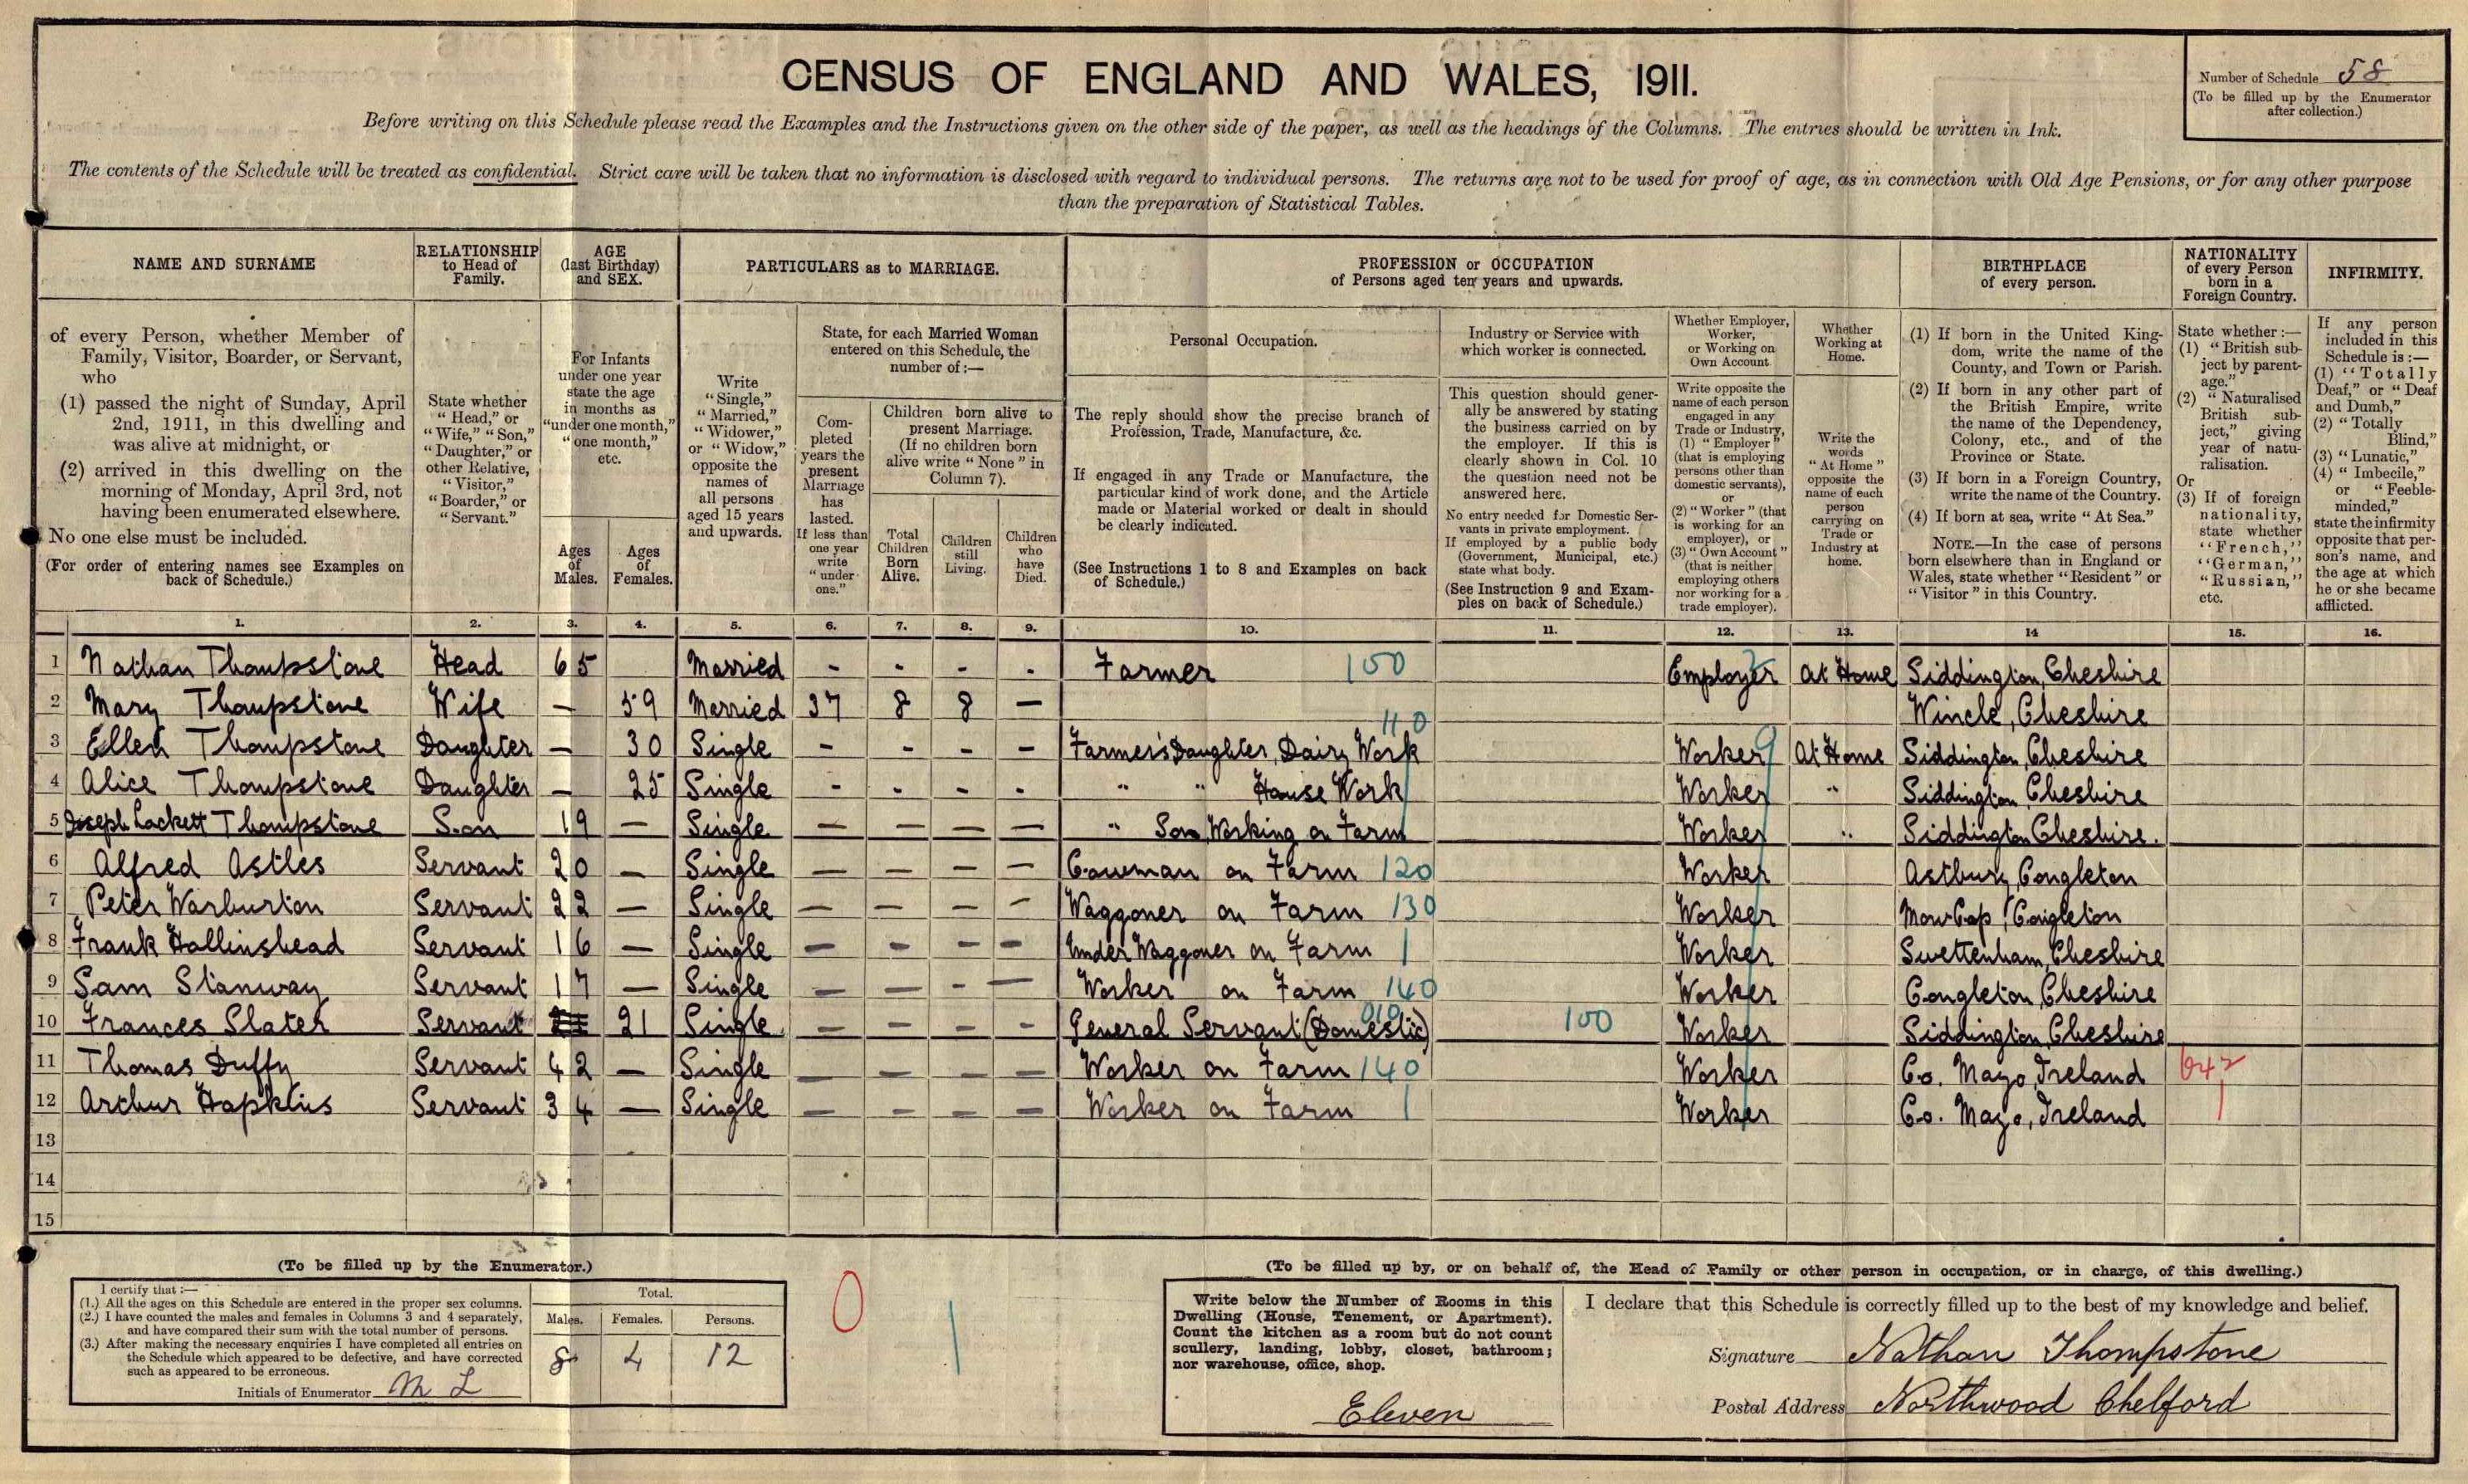 CENSUS OF ENGLAND AND WALES, 1911.
Number of Schedule 58
(To be filled up by the Enumerator after collection.)
Before writing on this Schedule please read the Examples and the Instructions given on the other side of the paper, as well as the headings of the Columns. The entries should be written in Ink.
The contents of the Schedule will be treated as confidential. Strict care will be taken that no information is disclosed with regard to individual persons. The returns are not to be used for proof of age, as in connection with Old Age Pensions, or for any other purpose
than the preparation of Statistical Tables.
NAME AND SURNAME
RELATIONSHIP to Head of Family.
AGE (last Birthday) and SEX.
PARTICULARS as to MARRIAGE.
PROFESSION or OCCUPATION of Persons aged ten years and upwards.
BIRTHPLACE of every person.
NATIONALITY of every Person born in a Foreign Country.
INFIRMITY.
of every Person, whether Member of
Family, Visitor, Boarder, or Servant,
who
(1) passed the night of Sunday, April
2nd, 1911, in this dwelling and
was alive at midnight, or
(2) arrived in this dwelling on the
morning of Monday, April 3rd, not
having been enumerated elsewhere.
No one else must be included.
(For order of entering names see Examples on
back of Schedule.)
State whether
"Head," or
"Wife," "Son,"
"Daughter," or
other Relative,
"Visitor,"
"Boarder," or
"Servant."
For Infants
under one year
state the age
in months as
"under one month,"
"one month,"
etc.
Ages of Males.
Ages of Females.
Write
"Single,"
"Married,"
"Widower,"
or "Widow,"
opposite the
names of
all persons
aged 15 years
and upwards.
State, for each Married Woman
entered on this Schedule, the
number of:—
Completed years the present Marriage has lasted.
If less than one year write "under one."
Children born alive to
present Marriage.
(If no children born
alive write "None" in
Column 7).
Total Children Born Alive.
Children still Living.
Children who have Died.
Personal Occupation.
The reply should show the precise branch of
Profession, Trade, Manufacture, &c.
If engaged in any Trade or Manufacture, the
particular kind of work done, and the Article
made or Material worked or dealt in should
be clearly indicated.
(See Instructions 1 to 8 and Examples on back
of Schedule.)
Industry or Service with
which worker is connected.
This question should gener-
ally be answered by stating
the business carried on by
the employer. If this is
clearly shown in Col. 10
the question need not be
answered here.
No entry needed for Domestic Ser-
vants in private employment.
If employed by a public body
(Government, Municipal, etc.)
state what body.
(See Instruction 9 and Exam-
ples on back of Schedule.)
Whether Employer,
Worker,
or Working on
Own Account
Write opposite the
name of each person
engaged in any
Trade or Industry,
(1) "Employer"
(that is employing
persons other than
domestic servants),
or
(2) "Worker" (that
is working for an
employer), or
(3) "Own Account"
(that is neither
employing others
nor working for a
trade employer).
Whether Working at Home.
Write the
words
"At Home"
opposite the
name of each
person
carrying on
Trade or
Industry at
home.
(1) If born in the United King-
dom, write the name of the
County, and Town or Parish.
(2) If born in any other part of
the British Empire, write
the name of the Dependency,
Colony, etc., and of the
Province or State.
(3) If born in a Foreign Country,
write the name of the Country.
(4) If born at sea, write "At Sea."
NOTE.—In the case of persons
born elsewhere than in England or
Wales, state whether "Resident" or
"Visitor" in this Country.
State whether:—
(1) "British sub-
ject by parent-
age."
(2) "Naturalised
British sub-
ject," giving
year of natu-
ralisation.
Or
(3) If of foreign
nationality,
state whether
"French,"
"German,"
"Russian,"
etc.
If any person
included in this
Schedule is:—
(1) "Totally
Deaf," or "Deaf
and Dumb,"
(2) "Totally
Blind,"
(3) "Lunatic,"
(4) "Imbecile,"
or "Feeble-
minded,"
state the infirmity
opposite that per-
son's name, and
the age at which
he or she became
afflicted.
1. 2. 3. 4. 5. 6. 7. 8. 9. 10. 11. 12. 13. 14 15. 16.
1 Nathan Thompstone Head 65 Married - - - - Farmer 100 Employer At Home Siddington, Cheshire
2 Mary Thompstone Wife — 59 Married 37 8 8 — Wincle, Cheshire
3 Ellen Thompstone Daughter — 30 Single - - - - Farmer's Daughter, Dairy Work 110 Worker 9 At Home Siddington, Cheshire
4 Alice Thompstone Daughter — 25 Single - - - - " " House Work Worker " Siddington, Cheshire
5 Joseph Lockett Thompstone Son 19 — Single — — — — " Son, Working on Farm Worker " Siddington, Cheshire.
6 Alfred Astles Servant 20 — Single — — — — Cowman on Farm 120 Worker Astbury, Congleton
7 Peter Warburton Servant 22 — Single — — — — Waggoner on Farm 130 Worker Mow Cop, Congleton
8 Frank Hollinshead Servant 16 — Single — — — — Under Waggoner on Farm Worker Swettenham, Cheshire
9 Sam Stanway Servant 17 — Single — — — — Worker on Farm 140 Worker Congleton, Cheshire
10 Frances Slater Servant 21 Single — — — — General Servant (Domestic) 010 100 Worker Siddington, Cheshire
11 Thomas Duffy Servant 42 — Single — — — — Worker on Farm 140 Worker Co. Mayo, Ireland 642
12 Arthur Hopkins Servant 34 — Single — — — — Worker on Farm Worker Co. Mayo, Ireland
13
14
15
(To be filled up by the Enumerator.)
I certify that:—
(1.) All the ages on this Schedule are entered in the proper sex columns.
(2.) I have counted the males and females in Columns 3 and 4 separately,
and have compared their sum with the total number of persons.
(3.) After making the necessary enquiries I have completed all entries on
the Schedule which appeared to be defective, and have corrected
such as appeared to be erroneous.
Initials of Enumerator M L
Total.
Males. Females. Persons.
8 4 12
0
(To be filled up by, or on behalf of, the Head of Family or other person in occupation, or in charge, of this dwelling.)
Write below the Number of Rooms in this
Dwelling (House, Tenement, or Apartment).
Count the kitchen as a room but do not count
scullery, landing, lobby, closet, bathroom;
nor warehouse, office, shop.
Eleven
I declare that this Schedule is correctly filled up to the best of my knowledge and belief.
Signature Nathan Thompstone
Postal Address Northwood Chelford